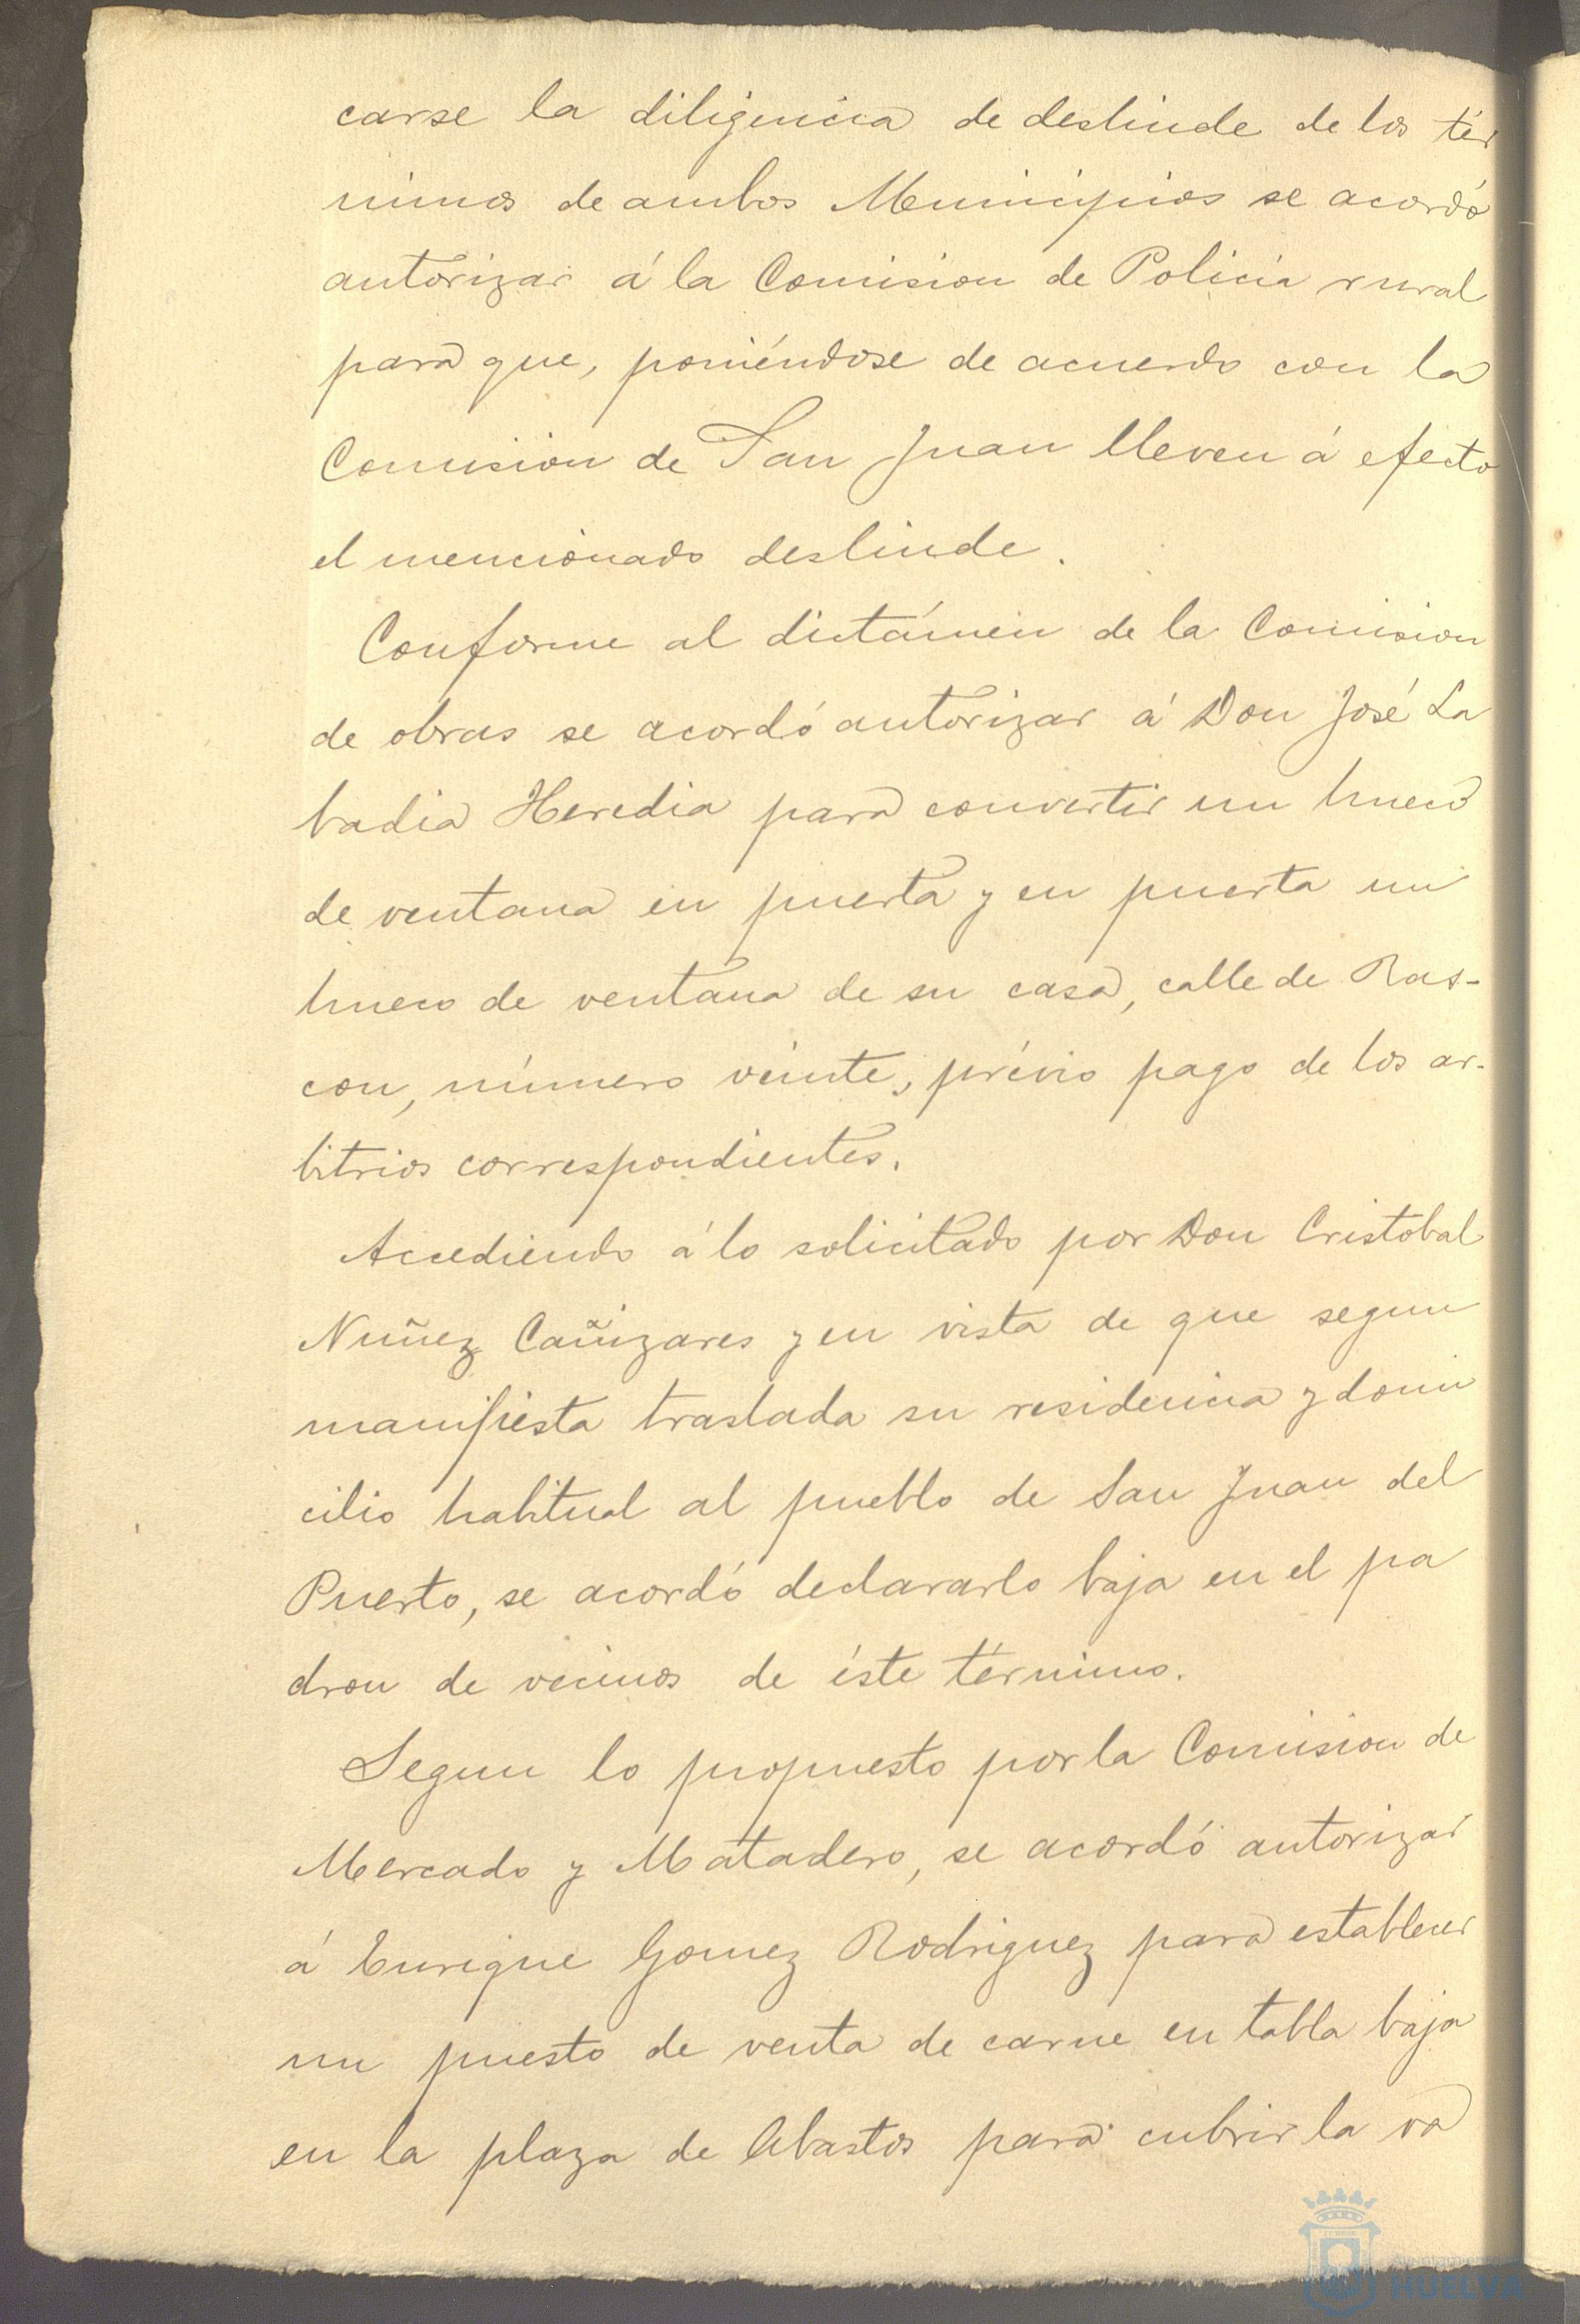 carse la diligencia de deslinde de los tér
minos de ambos Municipios se acordó
autorizar á la Comision de Policia rural
para que, poniéndose de acuerdo con la
Comision de San Juan lleven á efecto
el mencionado deslinde.
Conforme al dictámen de la Comision
de obras se acordó autorizar á Don José La
badia Heredia para convertir un hueco
de ventana en puerta y en puerta un
hueco de ventana de su casa, calle de Ras-
con, número veinte, prévio pago de los ar-
bitrios correspondientes.
Accediendo á lo solicitado por Don Cristobal
Nuñez Cañizares y en vista de que segun
manifiesta traslada su residencia y domi
cilio habitual al pueblo de San Juan del
Puerto, se acordó declararlo baja en el pa
dron de vecinos de éste término.
Segun lo propuesto por la Comision de
Mercado y Matadero, se acordó autorizar
á Enrique Gomez Rodriguez para establecer
un puesto de venta de carne en tabla baja
en la plaza de Abastos para cubrir la va
Ayuntamiento
HUELVA